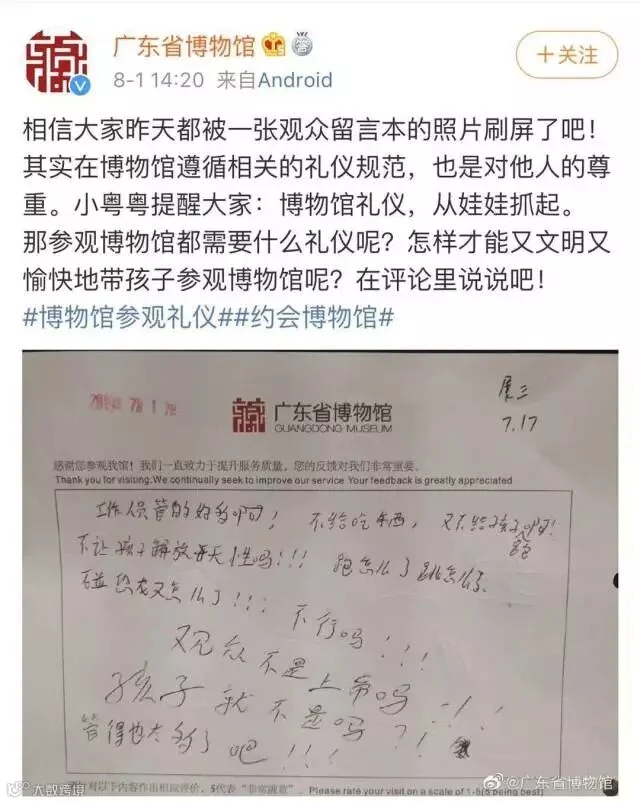 广东省博物馆
8-1 14:20 来自Android
+关注
相信大家昨天都被一张观众留言本的照片刷屏了吧！
其实在博物馆遵循相关的礼仪规范，也是对他人的尊
重。小粤粤提醒大家：博物馆礼仪，从娃娃抓起。
那参观博物馆都需要什么礼仪呢？怎样才能又文明又
愉快地带孩子参观博物馆呢？在评论里说说吧！
#博物馆参观礼仪##约会博物馆#
展三
7.17
广东省博物馆
GUANGDONG MUSEUM
感谢您参观我馆！我们一直致力于提升服务质量，您的反馈对我们非常重要。
Thank you for visiting.We continually seek to improve our service Your feedback is greatly appreciated
工作人员管的好多啊！不给吃东西，又不给孩子跑啊！
不让孩子解放天性吗！！！跑怎么了跳怎么了
恐龙又怎么了！！！
不行吗！！！
观众不是上帝吗！！！
孩子就不是吗？！！
管得也太多了吧！！！
针对以下内容作出相应评价，5代表“非常满意”。
Please rate your visit on a scale of 1-5(5 being best)
大数跨境
@广东省博物馆